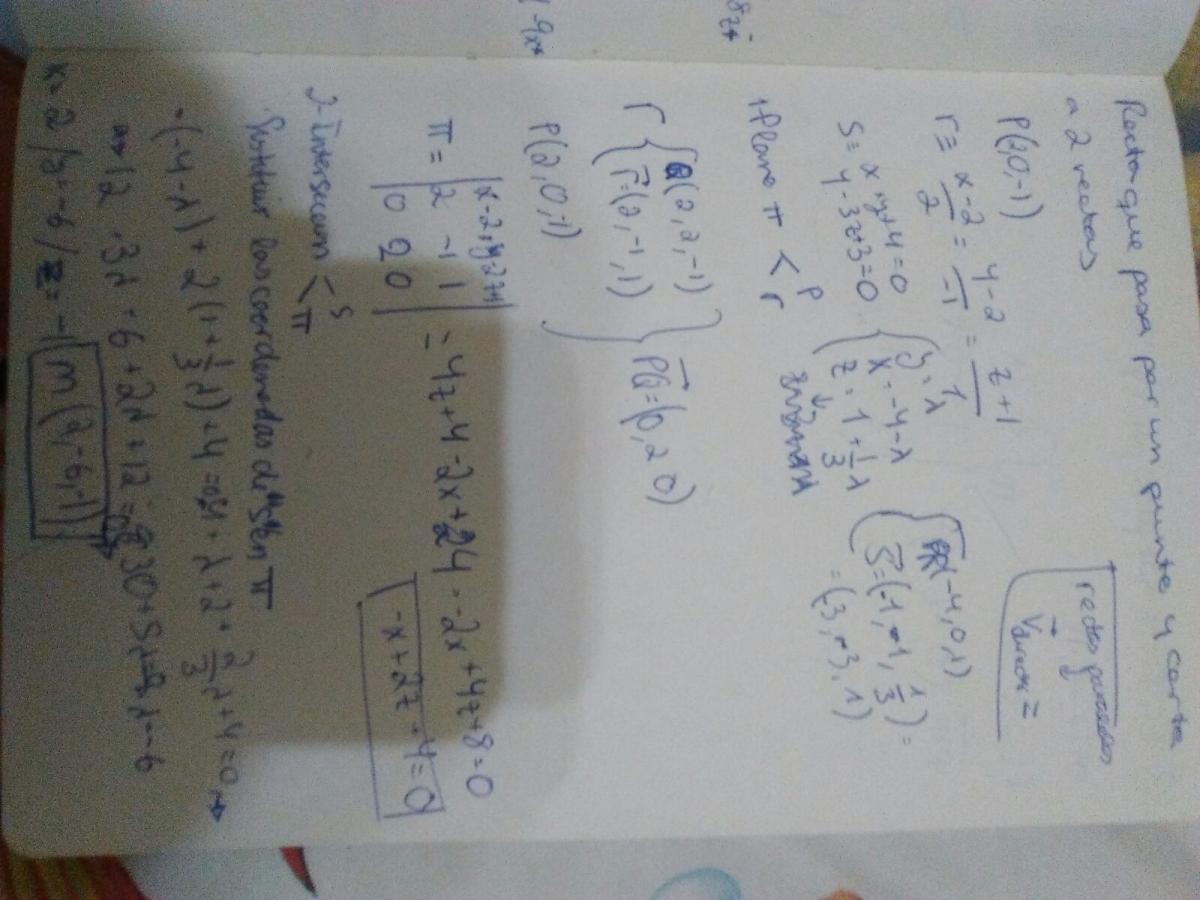 Recta que pasa por un punto y corta
a 2 rectas
rectas paralelas
V⃗ directores =
P(2,0,-1)
r ≡ x-2/2 = y-2/-1 = z+1/1
s ≡ x+y+4=0
y-3z+3=0
y = λ
x = -4-λ
z = 1+1/3λ
(-4,0,1)
S⃗=(-1, 1, 1/3) =
= (-3, 3, 1)
1-Plano π < P r
r { Q(2,2,-1)
r⃗=(2,-1,1)
P(2,0,-1)
PQ⃗=(0,2 0)
π = |x-2, y, z+1|
|2 -1 1|
|0 2 0|
= 4z+4-2x+4 = -2x+4z+8=0
-x+2z+4=0
2-Intersección < s π
Sustituir las coordenadas de "s" en π
-(-4-λ) + 2(1+1/3λ)+4=0 4+λ+2+2/3λ+4=0 →
→ 12 + 3λ + 6 + 2λ + 12 = 0 30+5λ=0 λ=-6
x=2/y=-6/z=-1 M(2,-6,-1)
8z+
-9x+